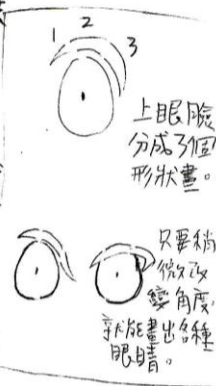 1 2 3
上眼臉
分成了個
形狀畫。
只要稍
微改
變角度,
就能畫出各種
眼睛。